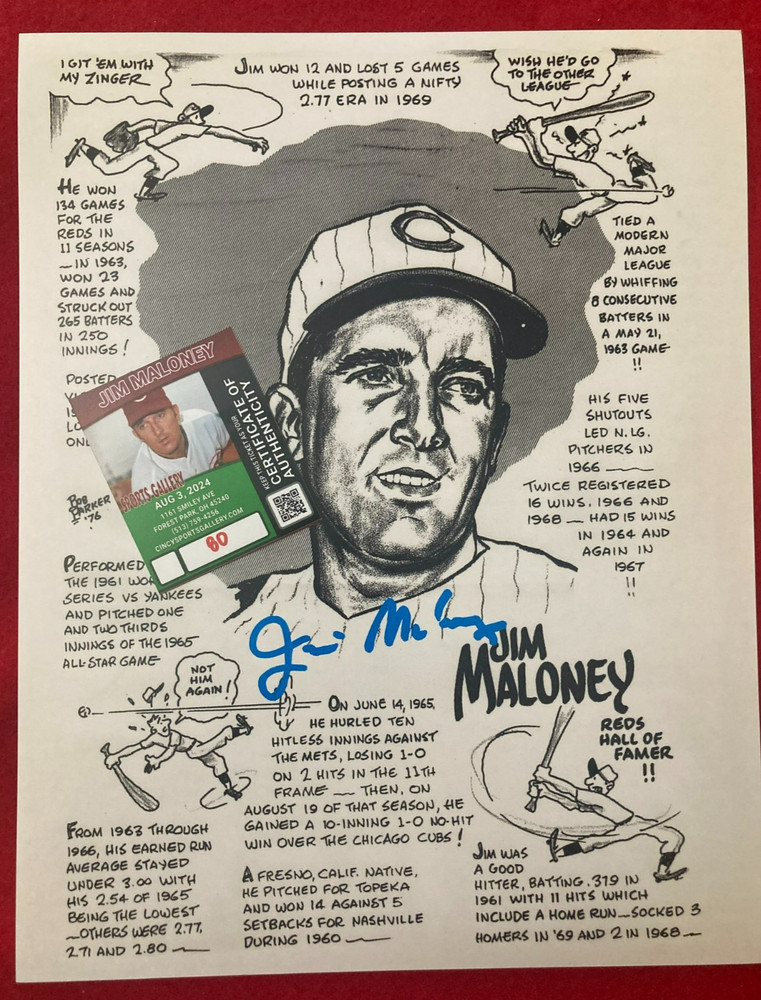 I GIT 'EM WITH
MY ZINGER
JIM WON 12 AND LOST 5 GAMES
WHILE POSTING A NIFTY
2.77 ERA IN 1969
WISH HE'D GO
TO THE OTHER
LEAGUE
HE WON
134 GAMES
FOR THE
REDS IN
11 SEASONS
— IN 1963,
WON 23
GAMES AND
STRUCK OUT
265 BATTERS
IN 250
INNINGS!
POSTED
TIED A
MODERN
MAJOR
LEAGUE
BY WHIFFING
8 CONSECUTIVE
BATTERS IN
A MAY 21,
1963 GAME
!!
HIS FIVE
SHUTOUTS
LED N. LG.
PITCHERS IN
1966 —
TWICE REGISTERED
16 WINS. 1966 AND
1968 — HAD 15 WINS
IN 1964 AND
AGAIN IN
1967
!!
JIM MALONEY
CERTIFICATE OF
AUTHENTICITY
KEEP THIS TICKET AS YOUR
SPORTS GALLERY
AUG 3, 2024
1161 SMILEY AVE
FOREST PARK, OH 45240
(513) 759-4256
CINCYSPORTSGALLERY.COM
80
BOB
PARKER
'76
PERFORMED
THE 1961
SERIES VS YANKEES
AND PITCHED ONE
AND TWO THIRDS
INNINGS OF THE 1965
ALL-STAR GAME
Jim Maloney
JIM
MALONEY
REDS
HALL OF
FAMER
!!
NOT
HIM
AGAIN!
ON JUNE 14, 1965,
HE HURLED TEN
HITLESS INNINGS AGAINST
THE METS, LOSING 1-0
ON 2 HITS IN THE 11TH
FRAME — THEN, ON
AUGUST 19 OF THAT SEASON, HE
GAINED A 10-INNING 1-0 NO-HIT
WIN OVER THE CHICAGO CUBS!
FROM 1963 THROUGH
1966, HIS EARNED RUN
AVERAGE STAYED
UNDER 3.00 WITH
HIS 2.54 OF 1965
BEING THE LOWEST
— OTHERS WERE 2.77,
2.71 AND 2.80 —
A FRESNO, CALIF. NATIVE,
HE PITCHED FOR TOPEKA
AND WON 14 AGAINST 5
SETBACKS FOR NASHVILLE
DURING 1960 —
JIM WAS
A GOOD
HITTER, BATTING .379 IN
1961 WITH 11 HITS WHICH
INCLUDE A HOME RUN — SOCKED 3
HOMERS IN '69 AND 2 IN 1968 —